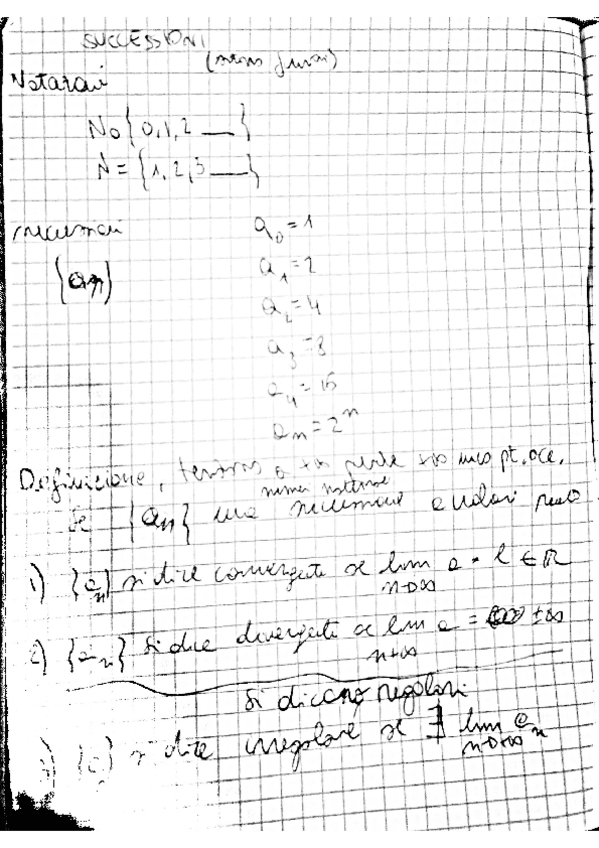 SUCCESSIONI
Notazioni
N₀ {0,1,2 __ }
N = {1,2,3 __ }
successioni
{aₙ}
a₀ = 1
a₁ = 2
a₂ = 4
a₃ = 8
a₄ = 16
aₙ = 2ⁿ
Definizione, a +∞ perché +∞ pt. acc.
numeri
Se {aₙ} una successione a valori
1) {aₙ} si dice convergente se lim a = l ∈ ℝ
n→∞
2) {aₙ} si dice divergente se lim a = ±∞
n→∞
si dicono regolari
3) {aₙ} si dice irregolare se ∄ lim aₙ
n→+∞